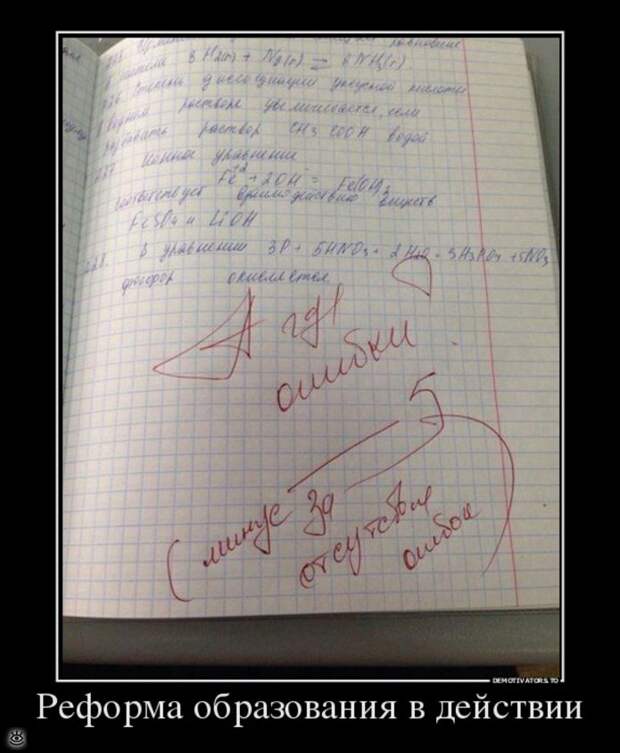 равновесие
3 H2(г) + N2(г) = 2NH3(г)
226 Степень диссоциации уксусной кислоты
водном растворе увеличивается, если
разбавить раствор CH3COOH водой
227 Ионное уравнение
Fe²⁺ + 2OH = Fe(OH)2
соответствует взаимодействию веществ
FeSO4 и LiOH
228. В уравнении 3P + 5HNO3 + 2H2O = 3H3PO4 + 5NO
фосфор окисляется.
А где
ошибки
5
(минус за
отсутствие
ошибок)
DEMOTIVATORS.TO
Реформа образования в действии